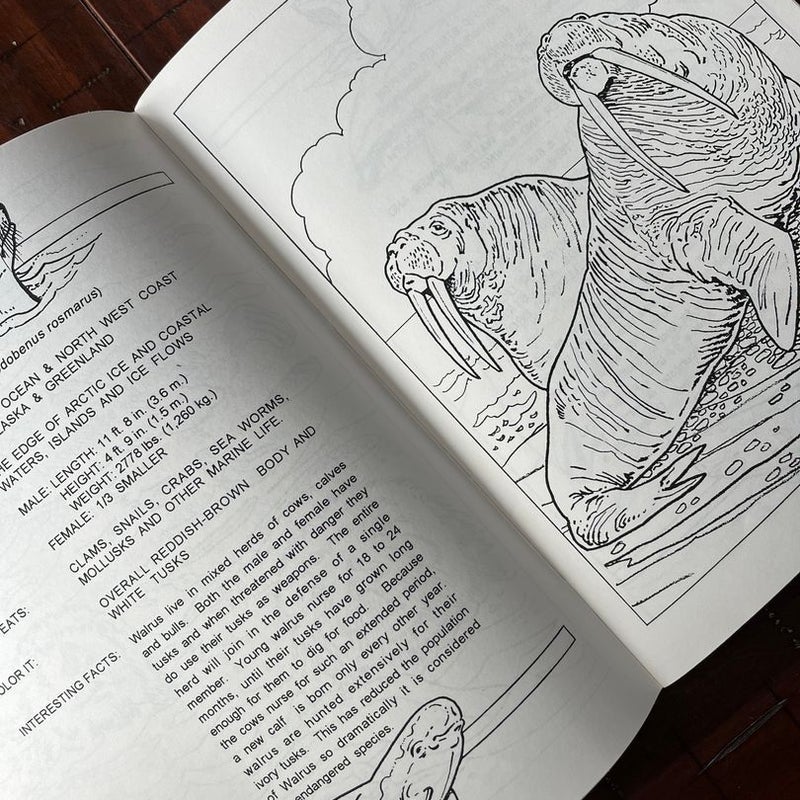 dobenus rosmarus)
OCEAN & NORTH WEST COAST
ASKA & GREENLAND
HE EDGE OF ARCTIC ICE AND COASTAL
WATERS, ISLANDS AND ICE FLOWS
MALE: LENGTH: 11 ft. 8 in. (3.6 m.)
HEIGHT: 4 ft. 9 in. (1.5 m.)
WEIGHT: 2778 lbs. (1,260 kg.)
FEMALE: 1/3 SMALLER
EATS:
CLAMS, SNAILS, CRABS, SEA WORMS,
MOLLUSKS AND OTHER MARINE LIFE.
OLOR IT:
OVERALL REDDISH-BROWN BODY AND
WHITE TUSKS
INTERESTING FACTS:
Walrus live in mixed herds of cows, calves
and bulls. Both the male and female have
tusks and when threatened with danger they
do use their tusks as weapons. The entire
herd will join in the defense of a single
member. Young walrus nurse for 18 to 24
months, until their tusks have grown long
enough for them to dig for food. Because
the cows nurse for such an extended period,
a new calf is born only every other year.
walrus are hunted extensively for their
ivory tusks. This has reduced the population
of Walrus so dramatically it is considered
endangered species.